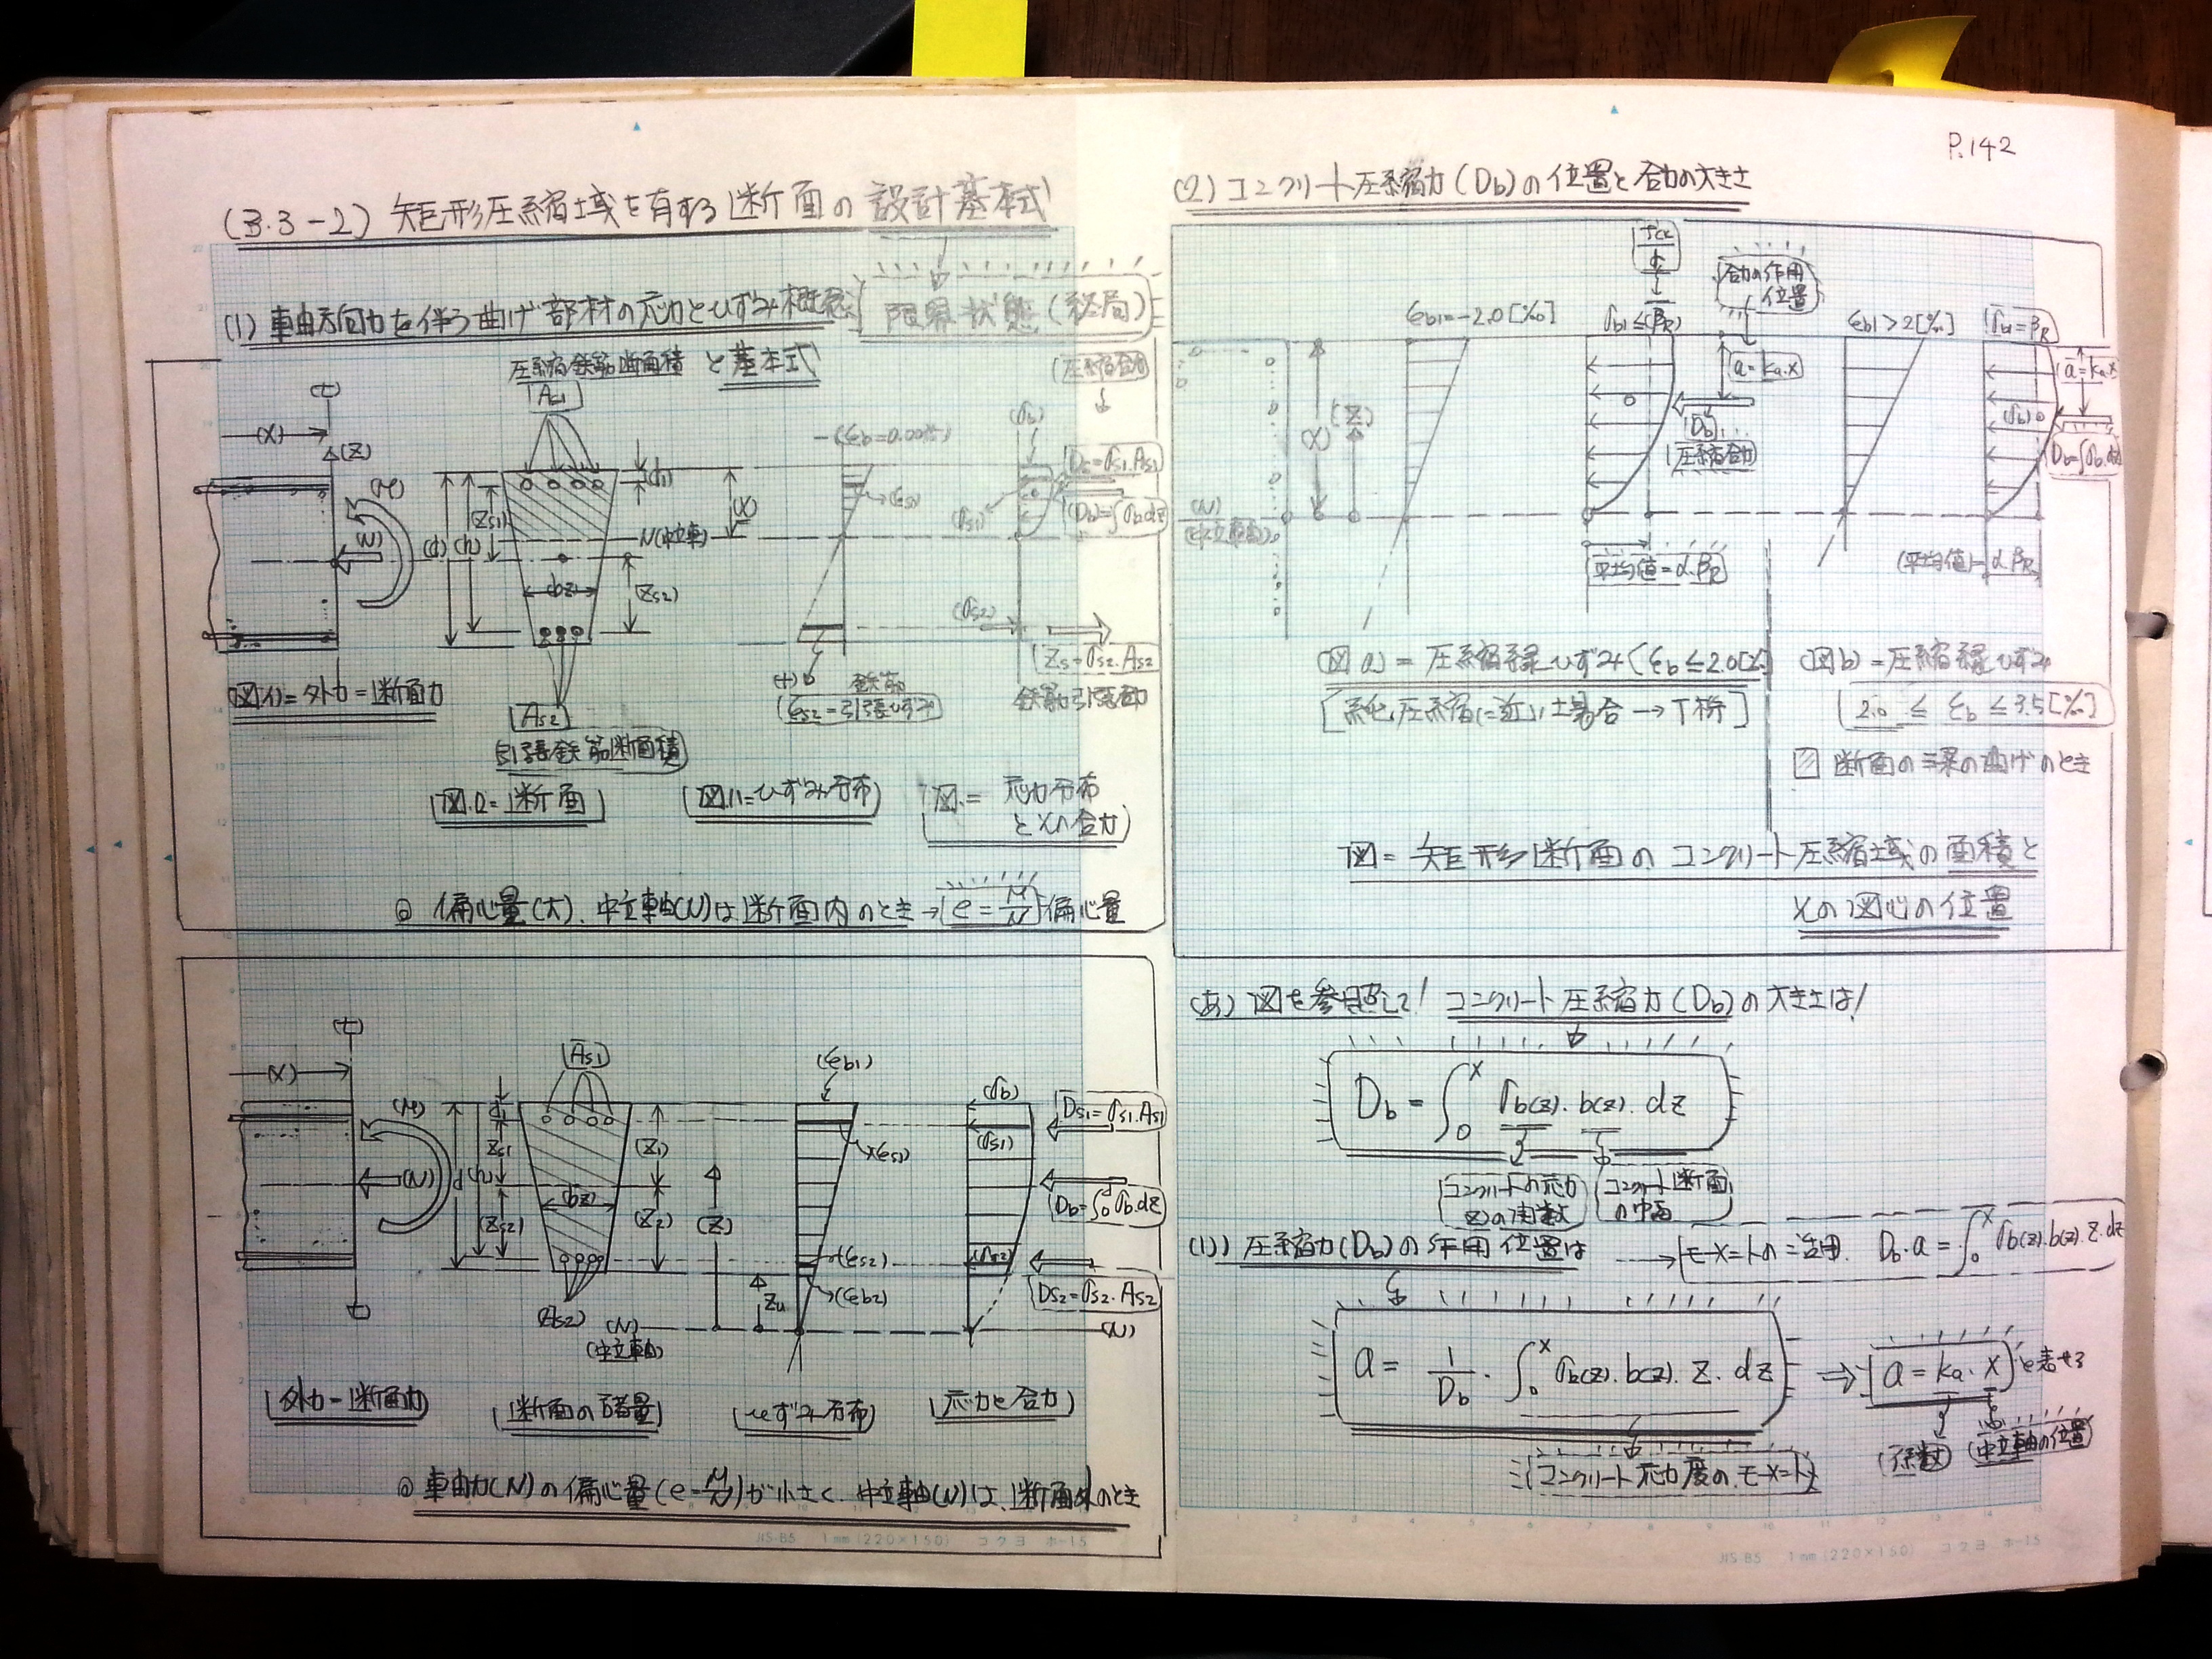 P.142
(3.3-2) 矩形圧縮域を有する断面の設計基本式
(1) 軸方向力を伴う曲げ部材の応力とひずみ概念
限界状態 (終局)
圧縮鉄筋断面積 と基本式
(圧縮合力)
(As1)
(t)
(X)
(Z)
(M)
(N)
(Zs1)
(d) (h)
(d1)
(X)
N(中立軸)
(bz)
(Zs2)
(εs1)
(σb)
Ds=σs1.As1
(σs1)
(Db)=∫σb.dz
(σs2)
Zs=σs2.As2
(図イ)=外力=断面力
(As2)
引張鉄筋断面積
(+)
鉄筋
(εs2=引張ひずみ)
鉄筋引張力
(図.ロ=断面)
(図ハ=ひずみ分布)
(図.= 応力分布
とその合力)
◎ 偏心量(大).中立軸(N)は断面内のとき→(e=M/N)偏心量
(t)
(X)
(M)
(N)
(As1)
d1
Zs1
d (h)
(Zs2)
(bz)
(Z1)
(Z2)
(Z)
Zu
(εb1)
(εs1)
(εs2)
(εb2)
(σb)
(σs1)
(σs2)
Ds1=σs1.As1
Db=∫σb.dz
Ds2=σs2.As2
(As2)
(N)
(中立軸)
(N)
(外力=断面力)
(断面の諸量)
(ひずみ分布)
(応力と合力)
◎ 軸力(N)の偏心量(e=M/N)が小さく.中立軸(N)は、断面外のとき
JIS-B5 1mm(220×150) コクヨ ホ-15
(2) コンクリート圧縮力(Db)の位置と合力の大きさ
合力の作用
位置
εb1=-2.0[‰]
σb1≦(βR)
εb1>2[‰]
σb1=βR
a=ka.X
(X)
(Z)
(Db)
圧縮合力
(σb)
Db=∫σb.dz
(N)
(中立軸)
平均値=α.βR
(平均値)=α.βR
(図a)=圧縮縁ひずみ(εb≦2.0[‰]
[純圧縮に近い場合→T桁]
(図b)=圧縮縁ひずみ
2.0≦εb≦3.5[‰]
断面の梁の曲げのとき
図=矩形断面のコンクリート圧縮域の面積と
その図心の位置
(あ) 図を参照して! コンクリート圧縮力(Db)の大きさは!
Db = ∫0x σb(z).b(z).dz
コンクリートの応力
zの関数
コンクリート断面
の中
(い) 圧縮力(Db)の作用位置は →モーメントの Db.a=∫0x σb(z).b(z).z.dz
a = 1/Db . ∫0x σb(z).b(z).z.dz ⇒ a=ka.X と表せる
(係数) (中立軸の位置)
(コンクリート応力度のモーメント)
JIS-B5 1mm(220×150) コクヨ ホ-15